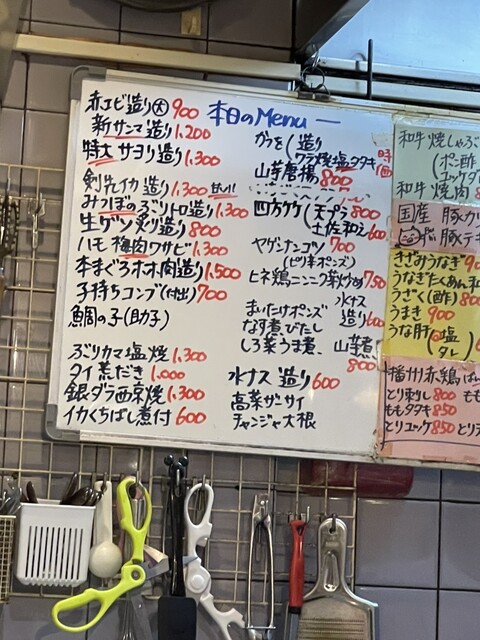 本日のMenu
赤エビ造り㊅ 900
新サンマ造り 1,200
特大サヨリ造り 1,300
剣先イカ造り 1,300
みつぼのぶりトロ造り 1,300
生ゲソ炙り造り 800
ハモ梅肉ワサビ 1,300
本まぐろホホ肉造り 1,500
子持ちコンブ(付出) 700
鯛の子(助子)
ぶりカマ塩焼 1,300
タイ荒だき 1,000
銀ダラ西京焼 1,300
イカくちばし煮付 600
かつを(造り
ワラ焼塩タタキ) 時価
山芋唐揚 800
四方竹(天プラ 800
土佐和え 600
ヤゲンナンコツ 700
(ピリ辛ポンズ)
ヒネ鶏ニンニク芽炒め 750
まいたけポンズ
なす煮びたし
しろ菜うま煮
水ナス
造り 600
山芋煮
800
水ナス造り 600
高菜ザーサイ
チャンジャ大根
和牛焼しゃぶ
(ポン酢
ユッケダ
和牛焼肉 8
国産豚カ
豚テキ
きざみうなぎ 90
うなぎたくあん和
うざく(酢) 800
うまき 900
うな肝(塩
タレ) 6
播州赤鶏
とり刺し 800 もも
ももタタキ 850
とりユッケ 850 とり